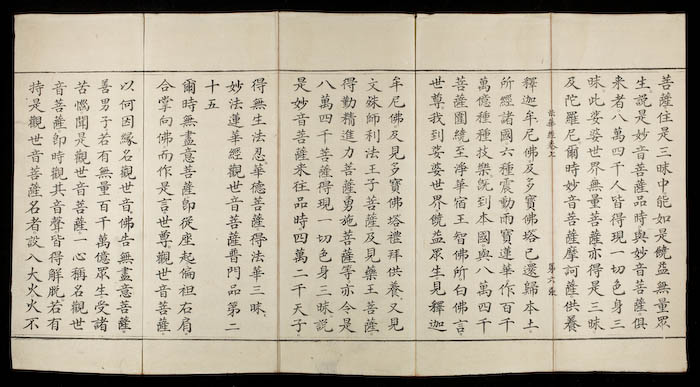 菩薩住是三昧中能如是饒益無量眾
生說是妙音菩薩品時與妙音菩薩俱
来者八萬四千人皆得現一切色身三
昧此娑婆世界無量菩薩亦得是三昧
及陀羅尼爾時妙音菩薩摩訶薩供養
法華經卷七 第六張
釋迦牟尼佛及多寶佛塔已還歸本土
所經諸國六種震動雨寶蓮華作百千
萬億種種技樂旣到本國與八萬四千
菩薩圍繞至淨華宿王智佛所白佛言
世尊我到娑婆世界饒益眾生見釋迦
牟尼佛及見多寶佛塔禮拜供養又見
文殊師利法王子菩薩及見藥王菩薩
得勤精進力菩薩勇施菩薩等亦令是
八萬四千菩薩得現一切色身三昧說
是妙音菩薩来往品時四萬二千天子
得無生法忍華德菩薩得法華三昧
妙法蓮華經觀世音菩薩普門品第二
十五
爾時無盡意菩薩即從座起偏袒右肩
合掌向佛而作是言世尊觀世音菩薩
以何因緣名觀世音佛告無盡意菩薩
善男子若有無量百千萬億眾生受諸
苦惱聞是觀世音菩薩一心稱名觀世
音菩薩即時觀其音聲皆得解脫若有
持是觀世音菩薩名者設入大火火不